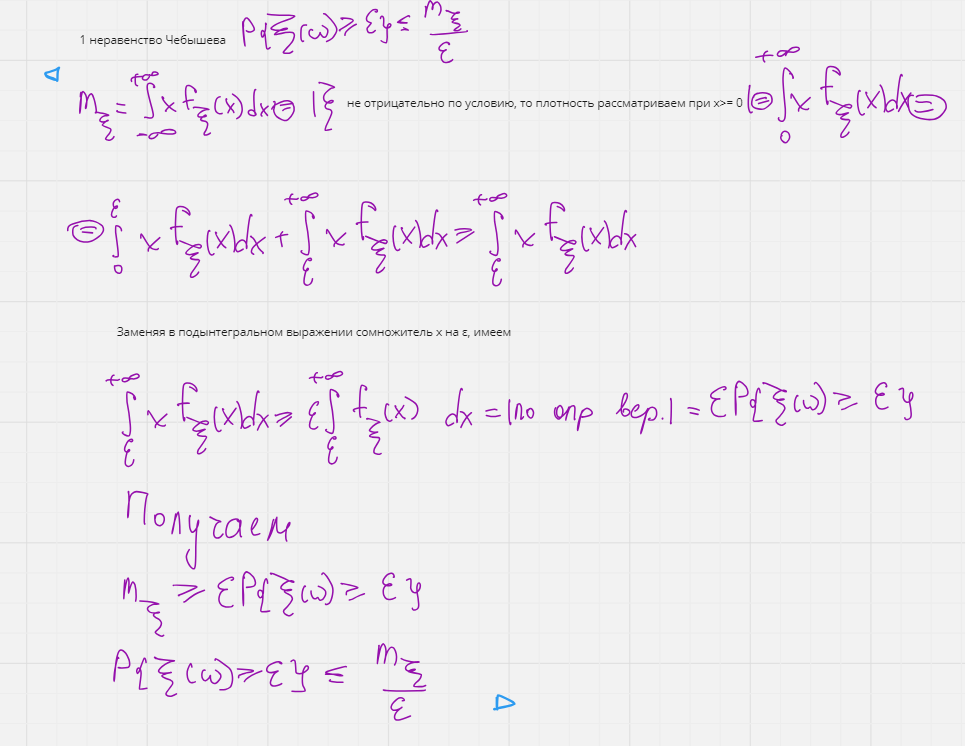 1 неравенство Чебышева P{ξ(ω) ≥ ε} ≤ m_ξ / ε
m_ξ = ∫_{-∞}^{+∞} x f_ξ(x)dx ⊜ |ξ не отрицательно по условию, то плотность рассматриваем при x>= 0 |⊜ ∫_0^{+∞} x f_ξ(x)dx ⊜
⊜ ∫_0^ε x f_ξ(x)dx + ∫_ε^{+∞} x f_ξ(x)dx ≥ ∫_ε^{+∞} x f_ξ(x)dx
Заменяя в подынтегральном выражении сомножитель x на ε, имеем
∫_ε^{+∞} x f_ξ(x)dx ≥ ε ∫_ε^{+∞} f_ξ(x) dx = |по опр вер.| = εP{ξ(ω) ≥ ε}
Получаем
m_ξ ≥ εP{ξ(ω) ≥ ε}
P{ξ(ω) ≥ ε} ≤ m_ξ / ε